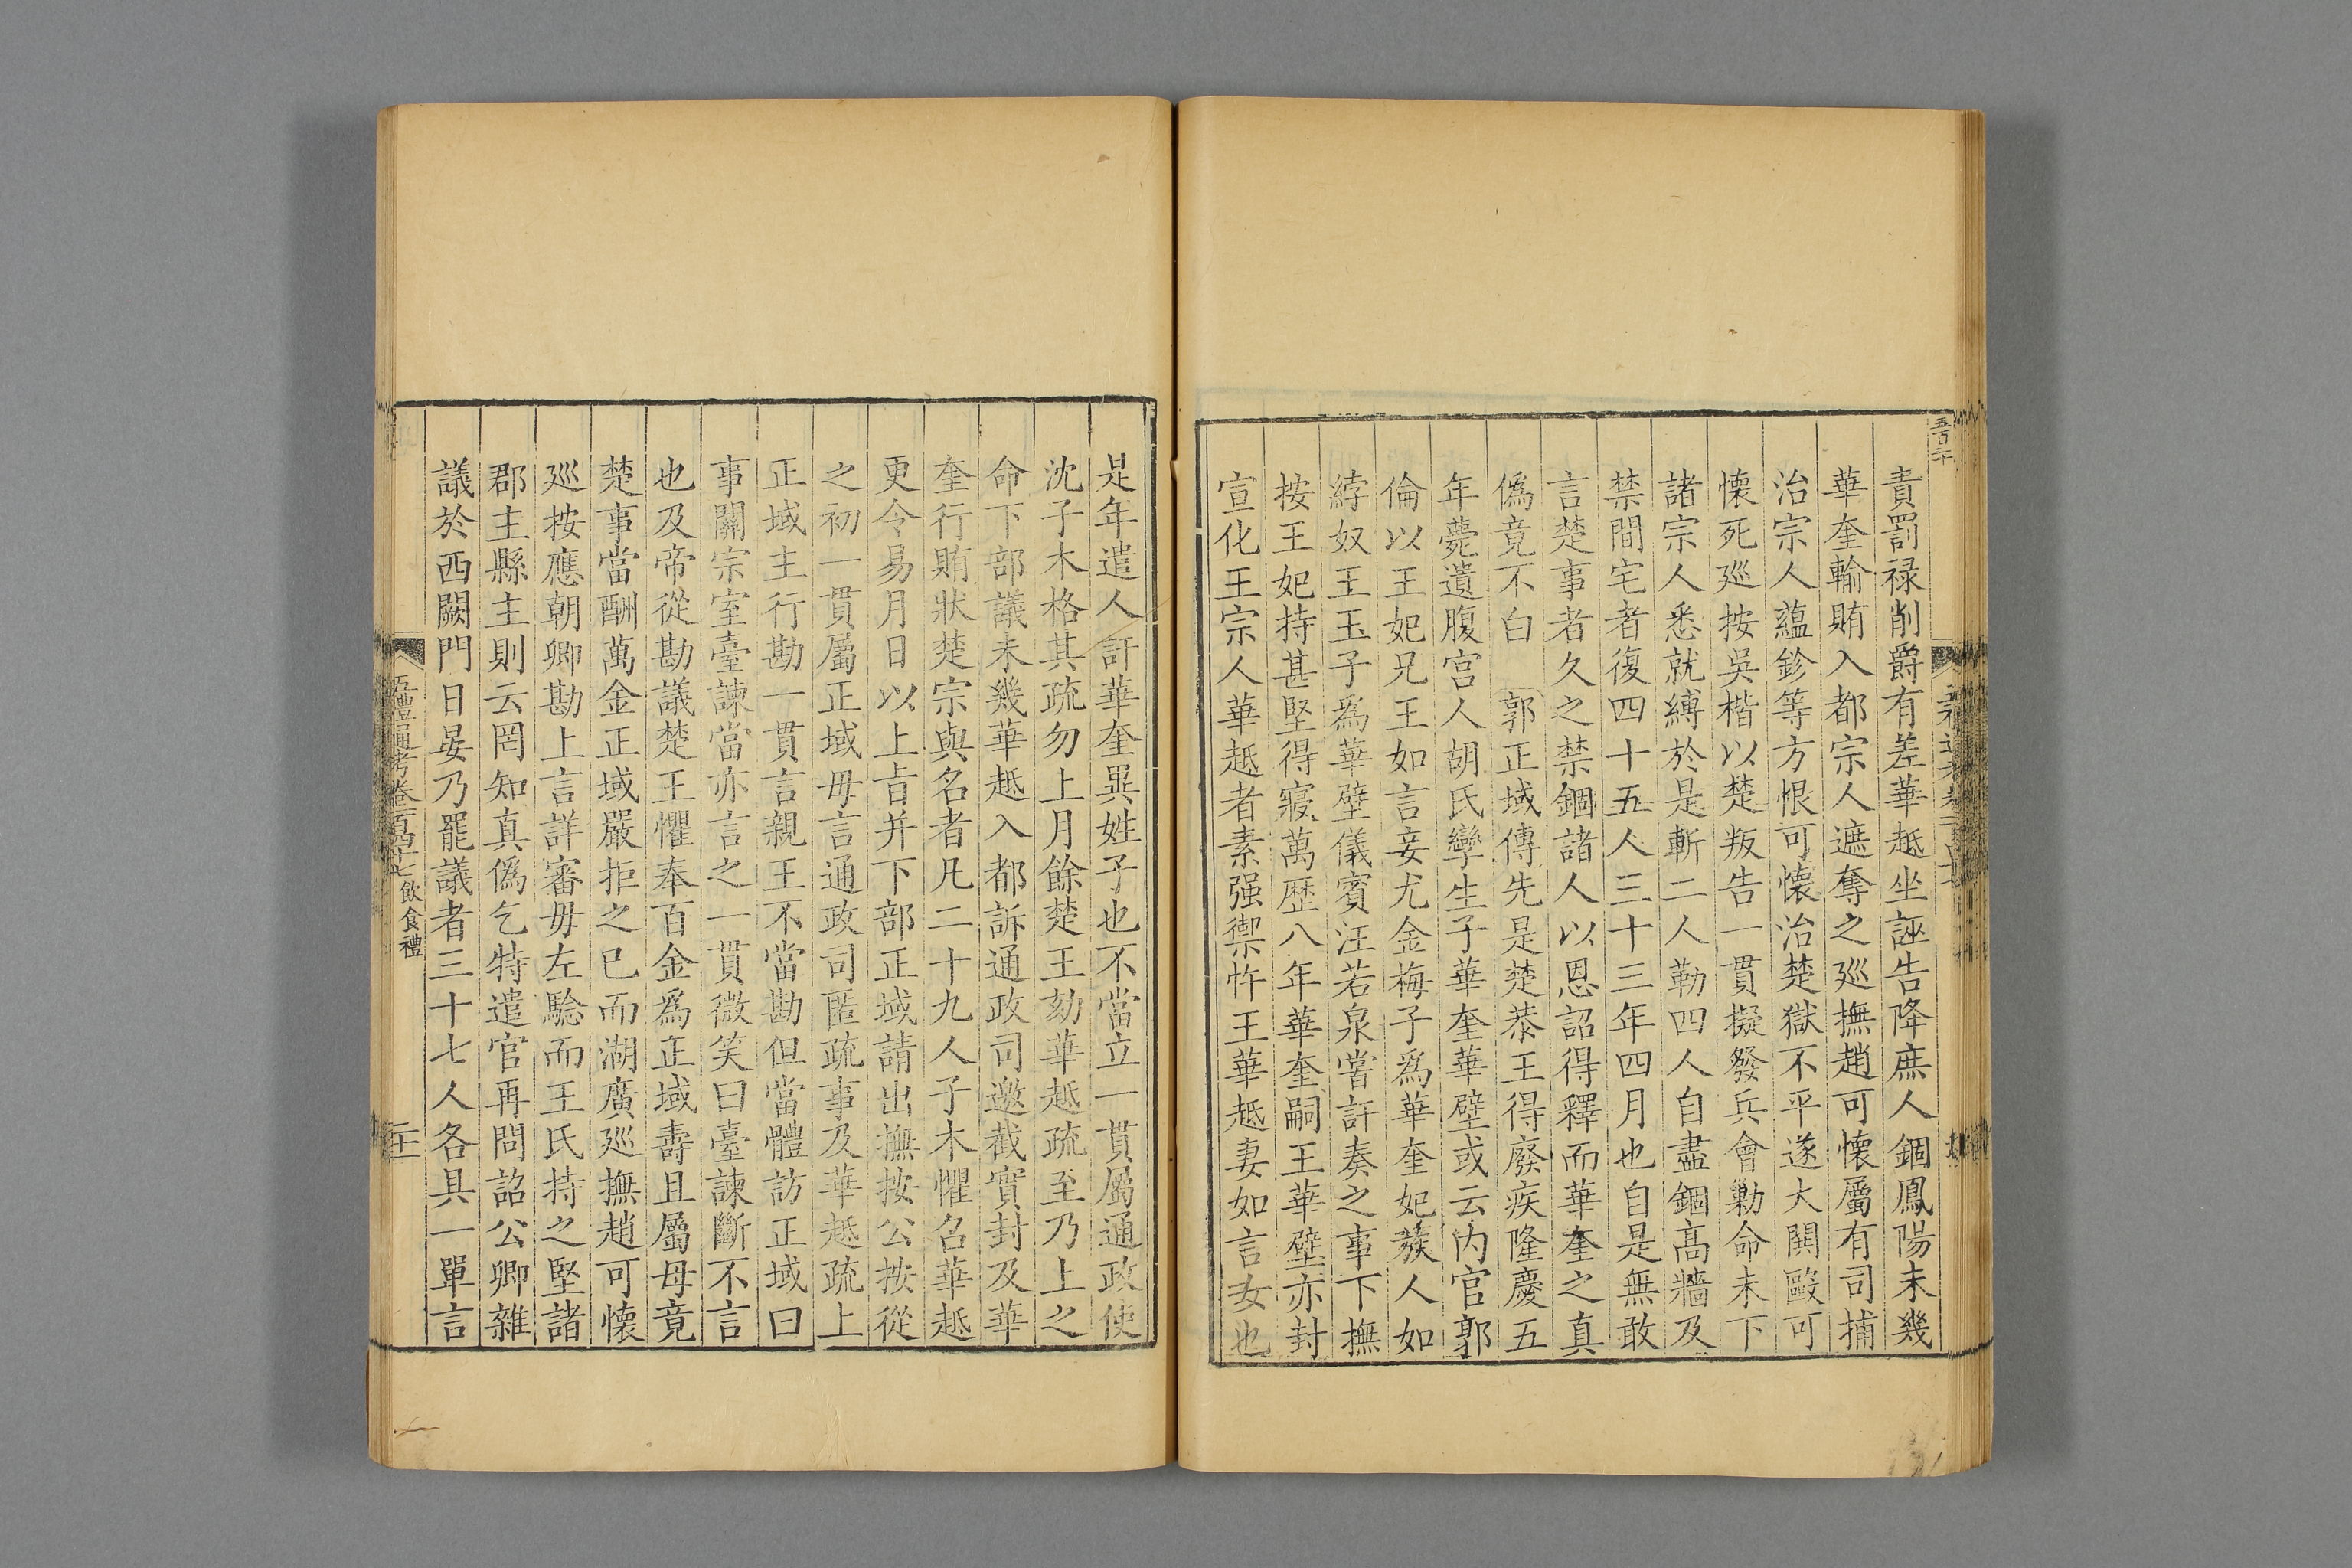 責罰祿削爵有差華趆坐誣告降庶人錮鳳陽未幾
華奎輸賄入都宗人遮奪之廵撫趙可懷屬有司捕
治宗人蘊鉁等方恨可懷治楚獄不平遂大鬨毆可
懷死廵按吳楷以楚叛告一貫擬發兵會勦命未下
諸宗人悉就縛於是斬二人勒四人自盡錮高牆及
禁間宅者復四十五人三十三年四月也自是無敢
言楚事者久之禁錮諸人以恩詔得釋而華奎之真
僞竟不白　郭正域傳先是楚恭王得廢疾隆慶五
年薨遺腹宮人胡氏孿生子華奎華壁或云內官郭
倫以王妃兄王如言妾尤金梅子爲華奎妃蔟人如
綍奴王玉子爲華壁儀賓汪若泉嘗訐奏之事下撫
按王妃持甚堅得寢萬歴八年華奎嗣王華壁亦封
宣化王宗人華趆者素强禦忤王華趆妻如言女也
是年遣人訐華奎異姓子也不當立一貫屬通政使
沈子木格其疏勿上月餘楚王劾華趆疏至乃上之
命下部議未幾華趆入都訴通政司邀截實封及華
奎行賄狀楚宗與名者凡二十九人子木懼召華趆
更令易月日以上旨并下部正域請出撫按公按從
之初一貫屬正域毋言通政司匿疏事及華趆疏上
正域主行勘一貫言親王不當勘但當體訪正域曰
事關宗室臺諫當亦言之一貫微笑曰臺諫斷不言
也及帝從勘議楚王懼奉百金爲正域壽且屬毋竟
楚事當酬萬金正域嚴拒之已而湖廣廵撫趙可懷
廵按應朝卿勘上言詳審毋左驗而王氏持之堅諸
郡主縣主則云罔知真僞乞特遣官再問詔公卿雜
議於西闕門日晏乃罷議者三十七人各具一單言
五禮通考卷一百四十七 飲食禮